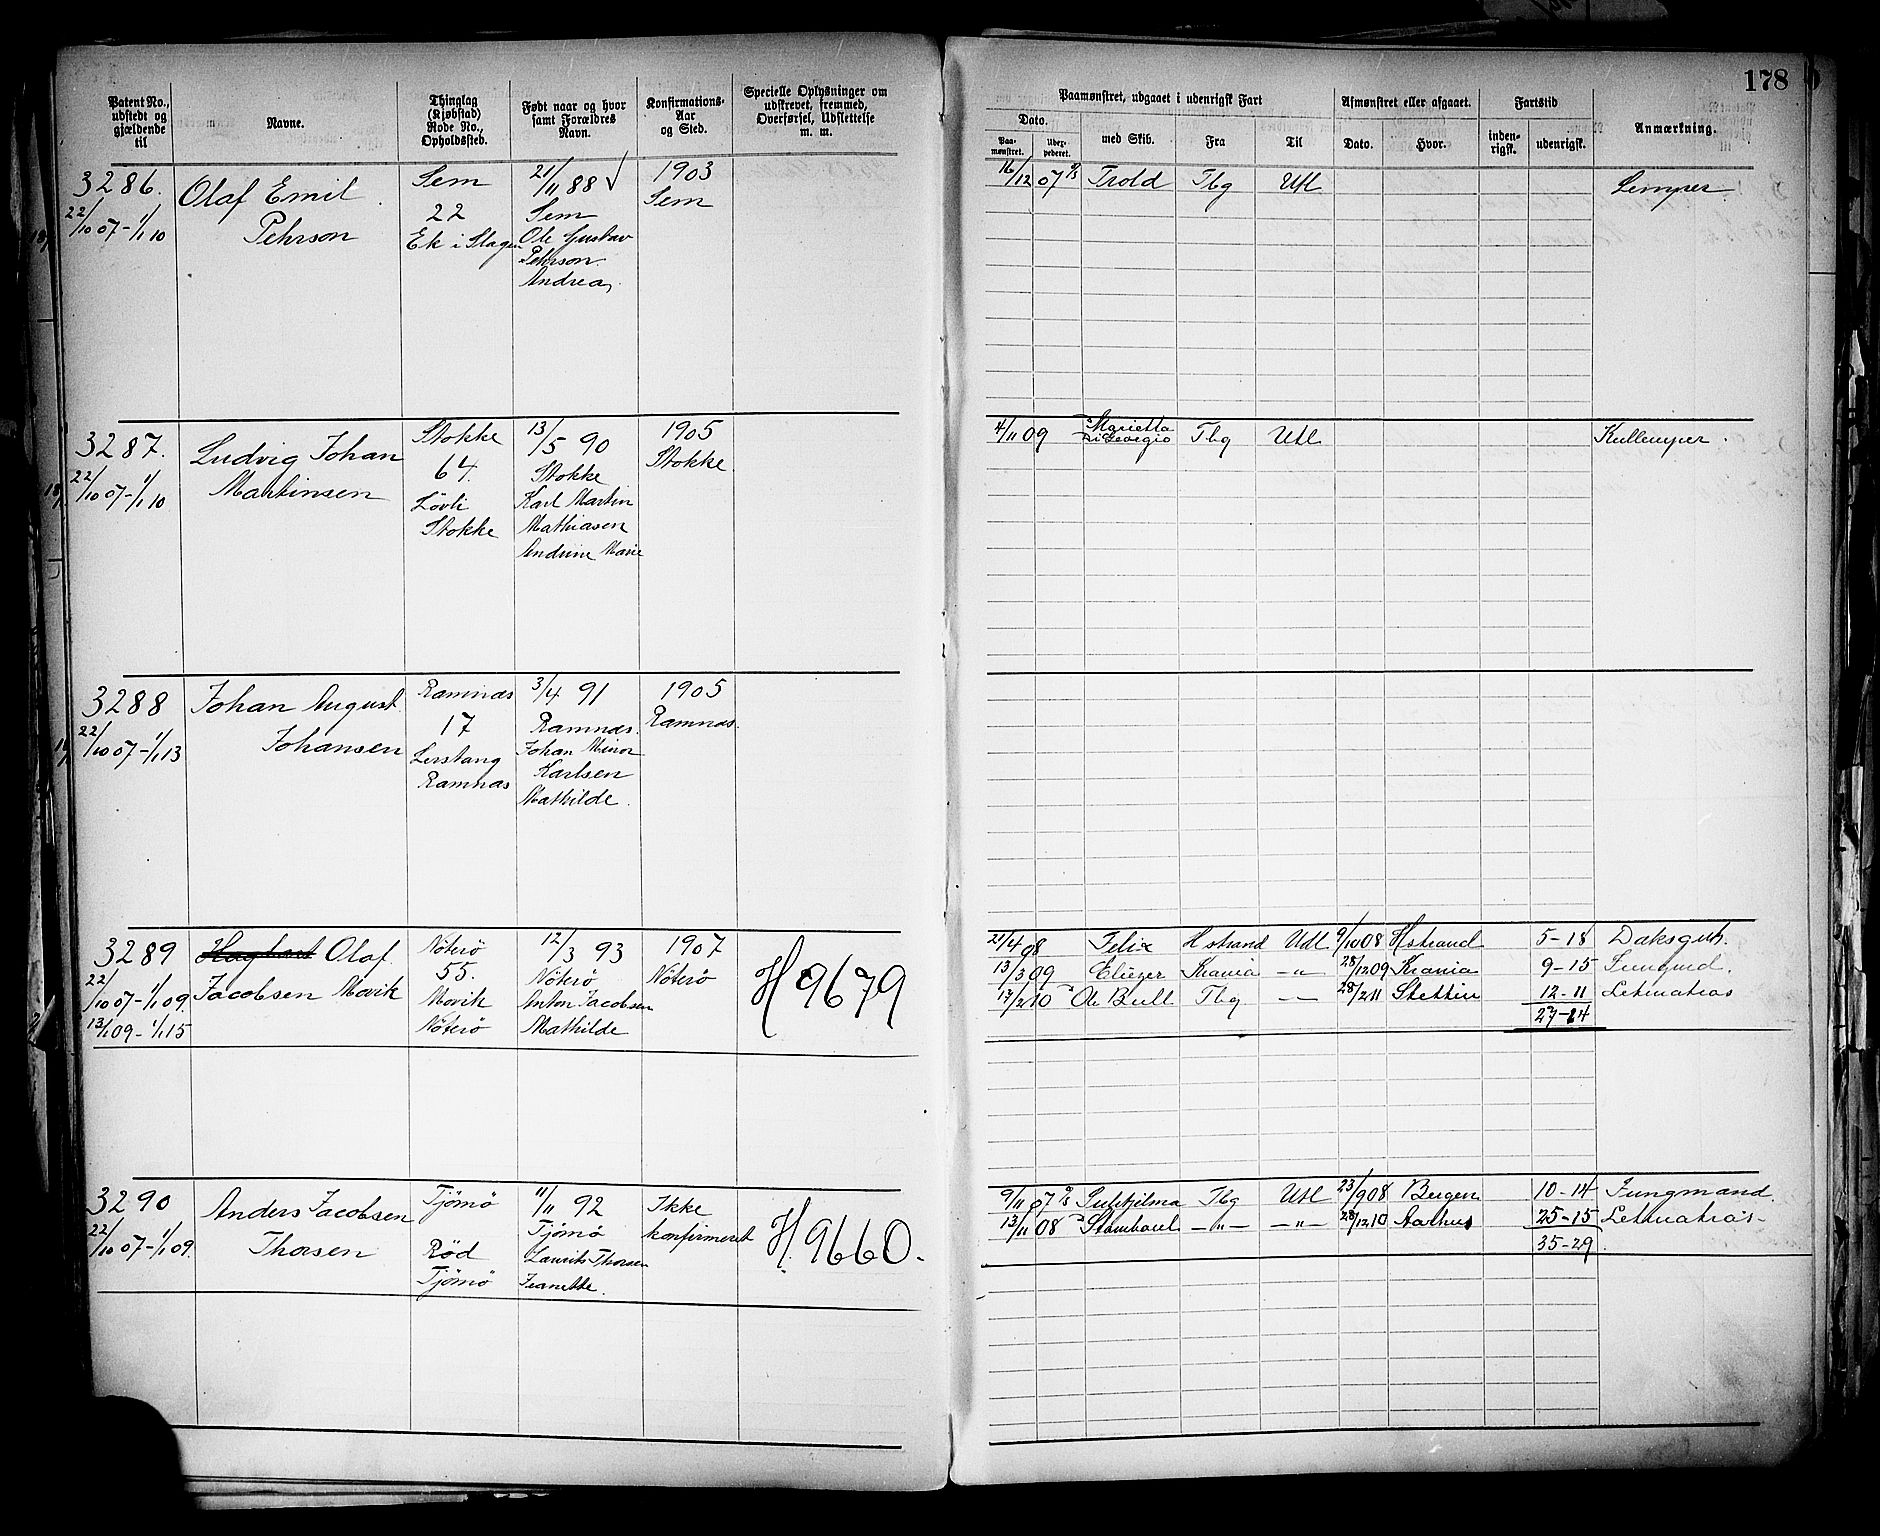 178
Patent No., udstedt og gjældende til
Navne.
Thinglag (Kjøbstad) Rode No., Opholdssted.
Født naar og hvor samt Forældres Navn.
Konfirmations-Aar og Sted.
Specielle Oplysninger om udskrevet, fremmed, Overførsel, Udslettelse m. m.
Paamønstret, udgaaet i udenrigsk Fart
Afmønstret eller afgaaet.
Fartstid
Anmærkning.
Dato.
Paa-mønstret.
med Skib.
Fra
Til
Dato.
Hvor.
inden-rigsk.
udenrigsk.
3286.
22/10 07 - 1/1 10
Olaf Emil
Pehrson
Sem
22
Ek i Slagen
21/11 88 √
Sem
Ole Gustav
Pehrson.
Andrea
1903
Sem
16/12 07 Trold Tbg Utl Lemper
3287.
22/10 07 - 1/1 10
Ludvig Johan
Martinsen
Stokke
64.
Lövli
Stokke
13/5 90
Stokke
Karl Martin
Mathiasen
Andrine Marie
1905
Stokke
4/11 09 Marietta
di Georgio Tbg Utl Kullemper.
3288
22/10 07 - 1/1 13
Johan August
Johansen
Ramnæs
17
Lerstang
Ramnæs
3/4 91
Ramnæs.
Johan Minor
Karlsen
Mathilde.
1905
Ramnæs.
3289
22/10 07 - 1/1 09.
13/1 09 - 1/1 15
Olaf
Jacobsen Movik
Nöterö
55.
Movik
Nöterö
12/3 93
Nöterö
Anton Jacobsen
Mathilde
1907
Nöterö
H 9679
21/4 08 Felix Hstrand Utl 9/10 08 Hstrand 5-18
13/3 09 Eliezer Krania -"- 28/12 09 Krania 9-15 Jungmd.
17/2 10 Ole Bull Tbg 28/2 11 Stettin 12-11 Letmatros
27-14
3290
22/10 07 - 1/1 09.
Anders Jacobsen
Thorsen
Tjömö
Röd
Tjömö
11/11 92
Tjömö
Laurits Thorsen
Jeanette.
Ikke
konfirmeret
H. 9660.
9/11 07 Tbg Utl 23/9 08 Bergen 10-14 Jungmand.
13/11 08 Stamboul -"- -"- 28/12 10 Aarhus 25-15 Letmatros-
35-29.